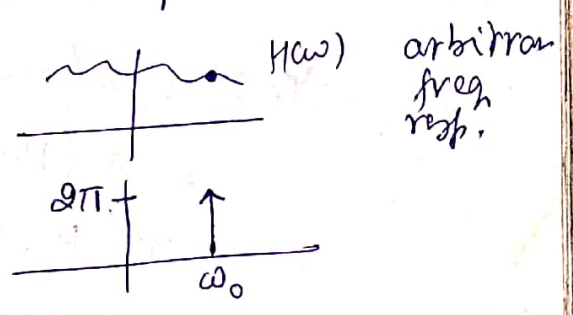 H(ω) arbitrary
freq
resp.
2π
ω₀